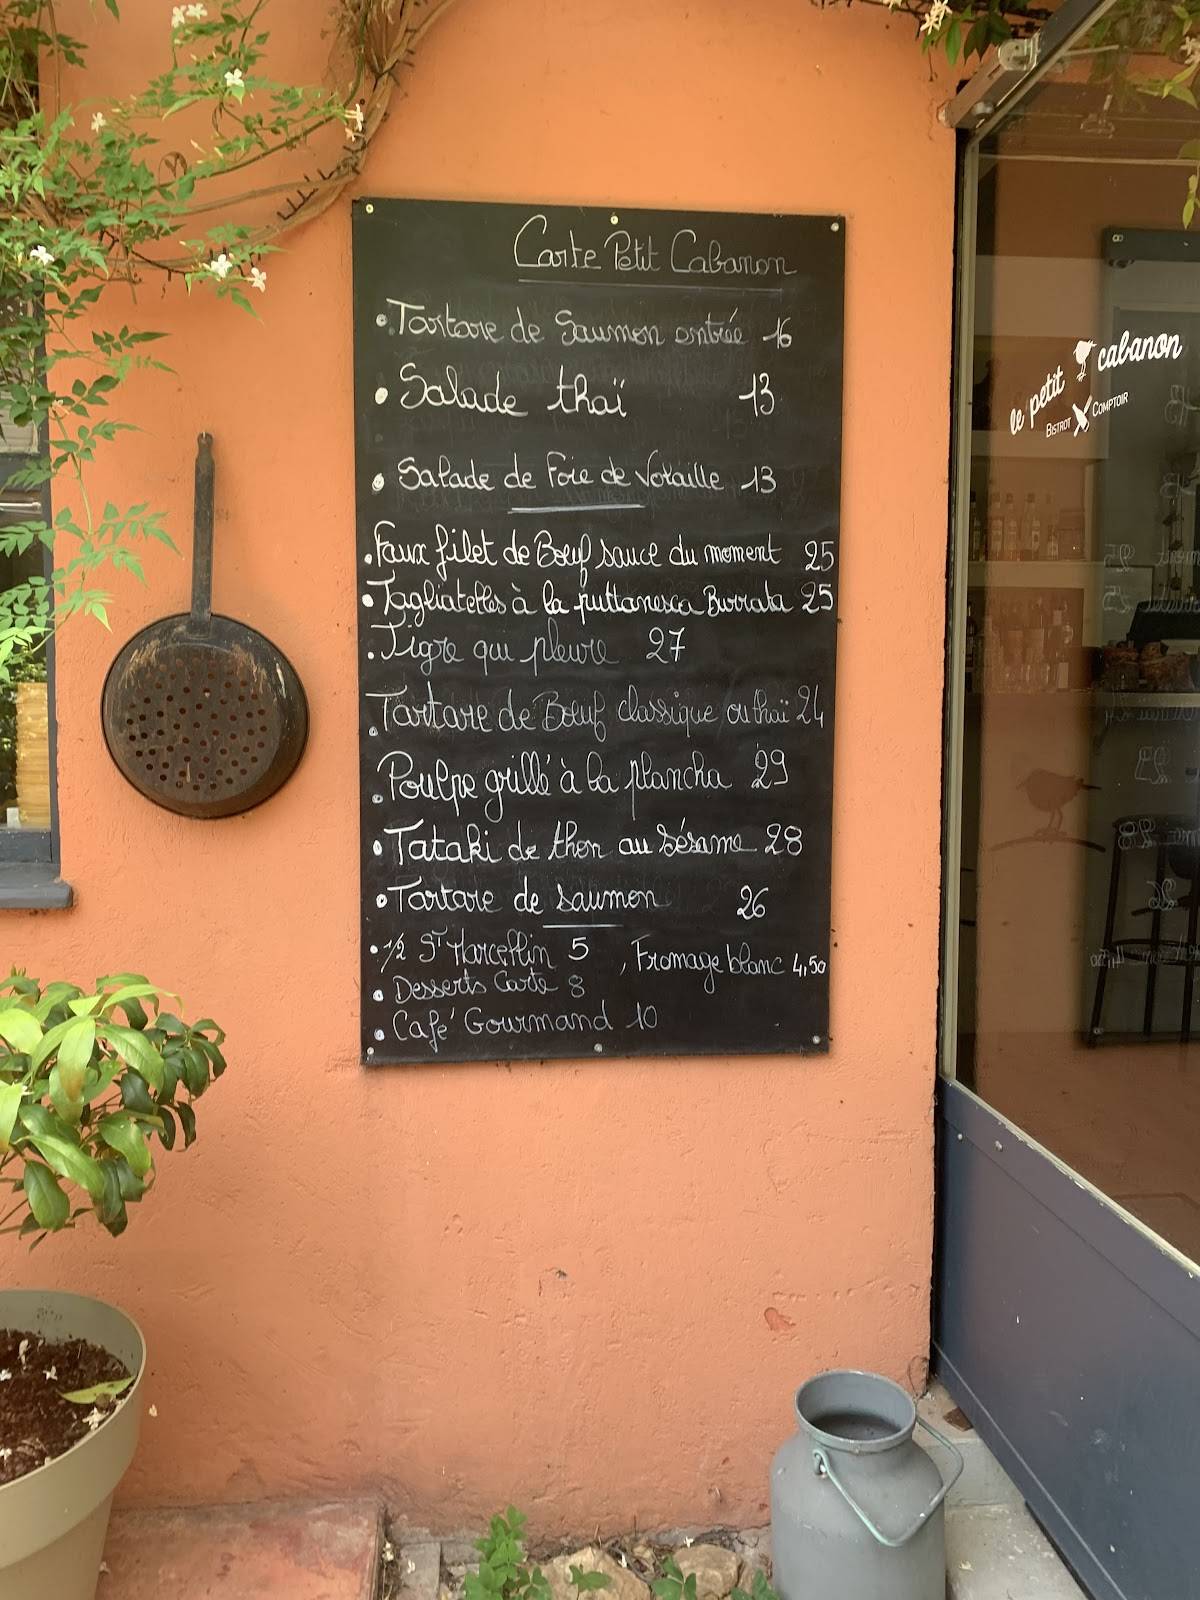 Carte Petit Cabanon
Tartare de Saumon entrée 16
Salade thaï 13
Salade de Foie de Volaille 13
Faux filet de Bœuf sauce du moment 25
Tagliatelles à la puttanesca Burrata 25
Tigre qui pleure 27
Tartare de Bœuf classique ou thaï 24
Poulpe grillé à la plancha 29
Tataki de thon au sésame 28
Tartare de saumon 26
1/2 St Marcellin 5 , Fromage blanc 4,50
Desserts Carte 8
Café Gourmand 10
le petit cabanon
BISTROT COMPTOIR